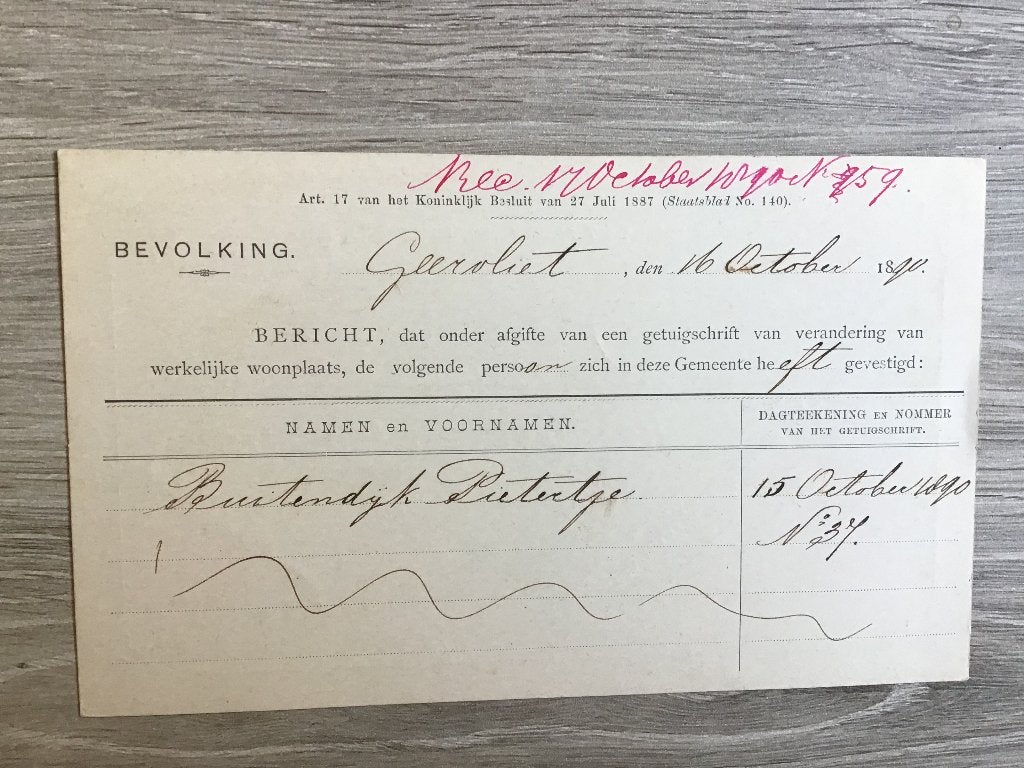 Rec. 17 October 1890 N 959.
Art. 17 van het Koninklijk Besluit van 27 Juli 1887 (Staatsblad No. 140).
BEVOLKING.
Geervliet, den 16 October 1890.
BERICHT, dat onder afgifte van een getuigschrift van verandering van
werkelijke woonplaats, de volgende persoon zich in deze Gemeente heeft gevestigd:
NAMEN en VOORNAMEN.
DAGTEEKENING EN NOMMER
VAN HET GETUIGSCHRIFT.
Buitendijk Pietertje
15 October 1890
No 37.